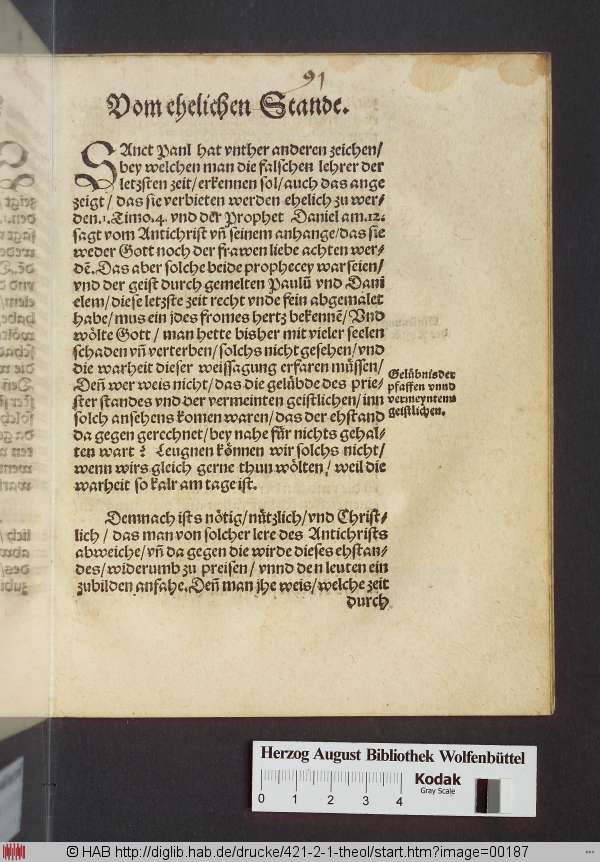 91
Vom ehelichen Stande.
SAnct Paul hat vnther anderen zeichen/
bey welchen man die falschen lehrer der
letzsten zeit/erkennen sol/auch das ange
zeigt/das sie verbieten werden ehelich zu wer-
den.1.Timo.4. vnd der Prophet Daniel am.12.
sagt vom Antichrist vñ seinem anhange/das sie
weder Gott noch der frawen liebe achten wer-
dē. Das aber solche beide prophecey war seien/
vnd der geist durch gemelten Paulū vnd Dani
elem/diese letzste zeit recht vnde fein abgemalet
habe/mus ein jdes fromes hertz bekennē/Vnd
wölte Gott/man hette bisher mit vieler seelen
schaden vñ verterben/solchs nicht gesehen/vnd
die warheit dieser weissagung erfaren müssen/
Deñ wer weis nicht/das die gelübde des prie-
ster standes vnd der vermeinten geistlichen/inn
solch ansehens komen waren/das der ehstand
da gegen gerechnet/bey nahe für nichts gehal-
ten wart? Leugnen können wir solchs nicht/
wenn wirs gleich gerne thun wölten/weil die
warheit so kalr am tage ist.
Gelübnis der
pfaffen vnnd
vermeyntenn
geistlichen.
Demnach ists nötig/nützlich/vnd Christ-
lich/das man von solcher lere des Antichrists
abweiche/vñ da gegen die wirde dieses ehstan-
des/widerumb zu preisen/vnnd den leuten ein
zubilden anfahe. Deñ man jhe weis/welche zeit
durch
Herzog August Bibliothek Wolfenbüttel
Kodak
Gray Scale
0 1 2 3 4
© HAB http://diglib.hab.de/drucke/421-2-1-theol/start.htm?image=00187